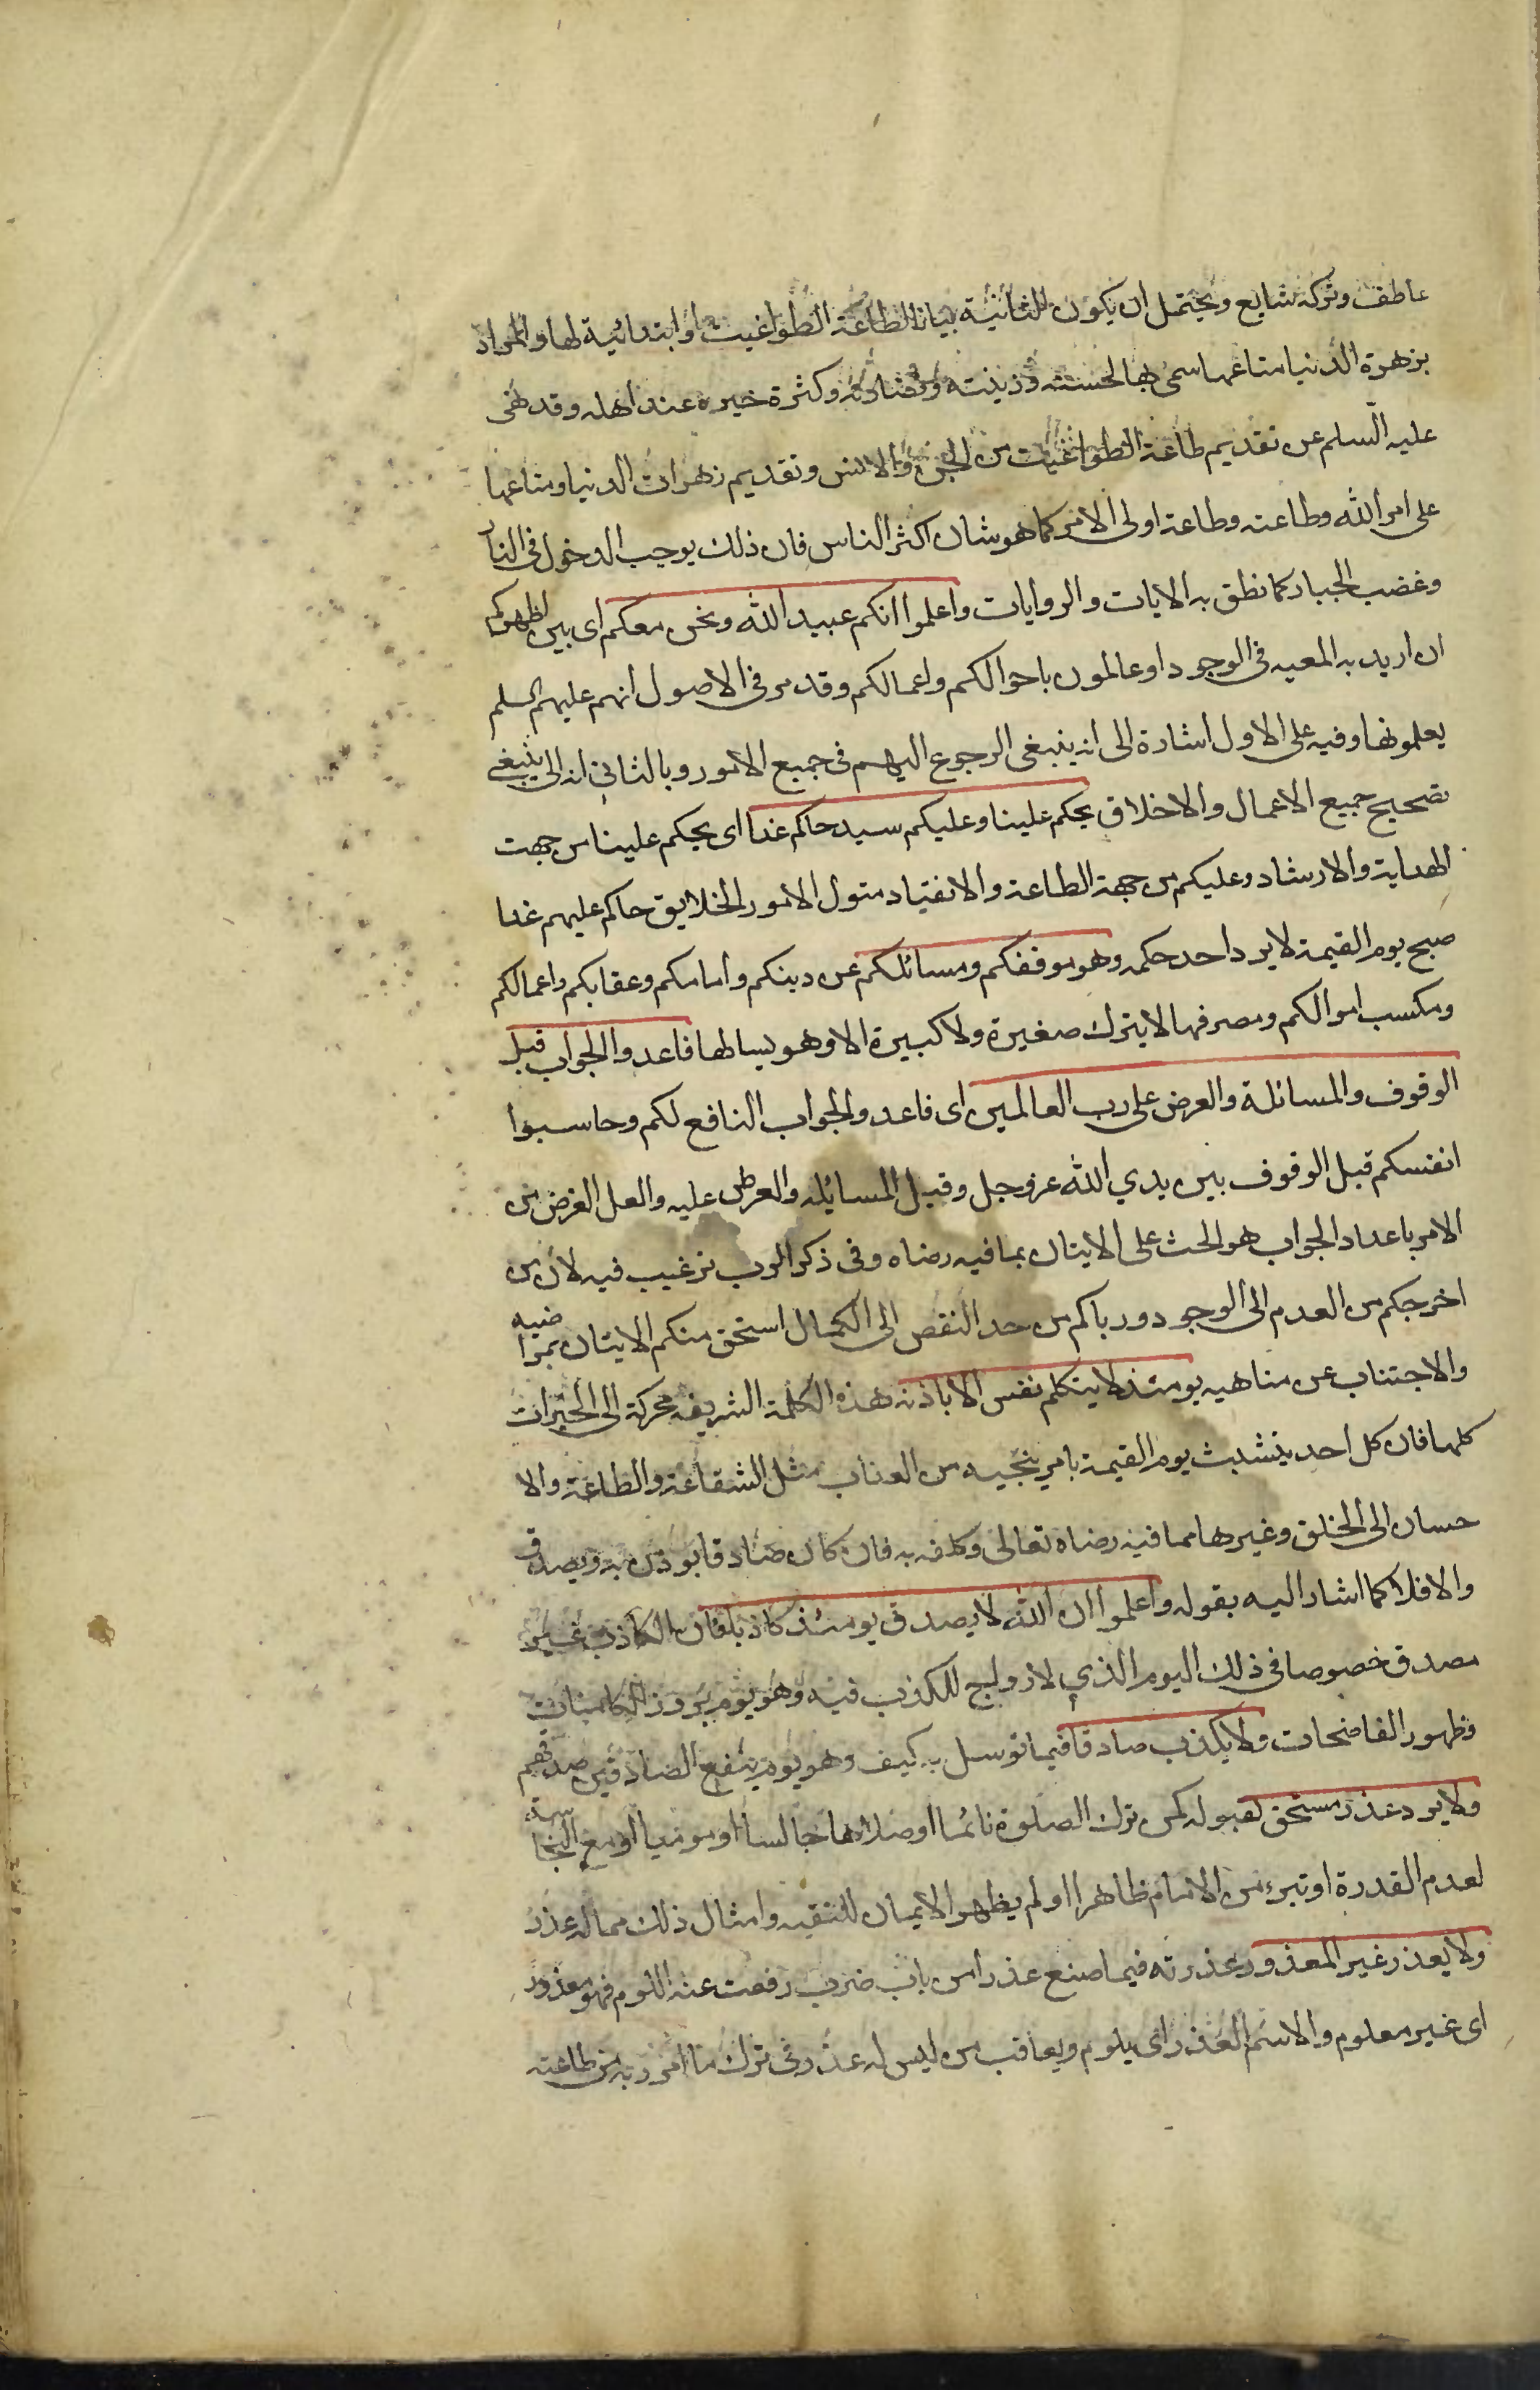 عاطف وتركه شايع ويحتمل ان يكون للثانية بيانا لطاعة الطواغيت او ابتدائية لها والمراد
بزهرة الدنيا متاعها سمى بها لحسنه وزينته ونضارته وكثرة خيره عند اهله وقد نهى
عليه السلم عن تقديم طاعة الطواغيت من الجن والانس وتقديم زهرات الدنيا ومتاعها
على امر الله وطاعته وطاعة اولى الامر كما هو شان اكثر الناس فان ذلك يوجب الدخول فى النار
وغضب الجبار كما نطق به الايات والروايات واعلموا انكم عبيد الله ونحن معكم اى بين اظهركم
ان اريد به المعيه فى الوجود او عالمون باحوالكم واعمالكم وقد مر فى الاصول انهم عليهم السلم
يعلمونها وفيه على الاول اشارة الى انه ينبغى الرجوع اليهم فى جميع الامور وبالثانى انه الى ينبغى
تصحيح جميع الاعمال والاخلاق يحكم علينا وعليكم سيد حاكم غدا اى يحكم علينا من جهت
الهداية والارشاد وعليكم من جهة الطاعة والانقياد متول الامور الخلايق حاكم عليهم غدا
صبح يوم القيمة لا يرد احد حكمه وهو موقفكم ومسائلكم عن دينكم وامامكم وعقابكم واعمالكم
ومكسب اموالكم ومصرفها لا يترك صغيرة ولا كبيرة الا وهو يسالها فاعدوا الجواب قبل
الوقوف والمسائلة والعرض على رب العالمين اى فاعدوا الجواب النافع لكم وحاسبوا
انفسكم قبل الوقوف بين يدي الله عز وجل وقبل المسايله والعرض عليه والعل الغرض من
الامر باعداد الجواب هو الحث على الايتان بما فيه رضاه وفى ذكر الرب ترغيب فيه لان من
اخرجكم من العدم الى الوجود ورباكم من حد النقص الى الكمال استحق منكم الايتان بمراضيه
والاجتناب عن مناهيه يومئذ لا يتكلم نفس الا باذنه هذه الكلمة الشريفه محركة الى الخيرات
كلها فان كل احد يتشبث يوم القيمة بامر ينجيه من العذاب مثل الشفاعة والطاعة والا
حسان الى الخلق وغيرها مما فيه رضاه تعالى وكلفه به فان كان صادقا يوذن به ويصدق
والا فلا كما اشار اليه بقوله واعلموا ان الله لا يصدق يومئذ كاذبا فان الكاذب غير
مصدق خصوصا فى ذلك اليوم الذي لا رواج للكذب فيه وهو يوم بروز الكامنات
وظهور الفاضحات ولا يكذب صادقا فيما توسل به كيف وهو يوم ينفع الصادقين صدقهم
ولا يرد عذر مستحق لقبوله كمن ترك الصلوة نائما او صلاها جالسا او موميا او مع النجاسة
لعدم القدرة او تبرء من الامام ظاهرا او لم يظهر الايمان للتقيه وامثال ذلك مما له عذر
ولا يعذر غير المعذور عذرته فيما صنع عذرا من باب ضرب رفعت عنه اللوم فهو معذور
اى غير معلوم والاسم العذر اى يلوم ويعاقب من ليس له عذر فى ترك ما امر به من طاعته